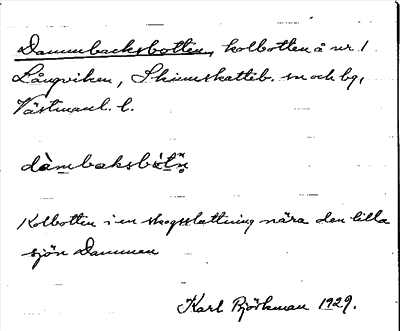 Dammbacksbotten, kolbotten å nr. 1
Långviken, Skinnskatteb. sn och bg,
Västmanl. l.
dàmbaksbòtn̥
Kolbotten i en skogsslattning nära den lilla
sjön Dammen
Karl Björkman 1929.